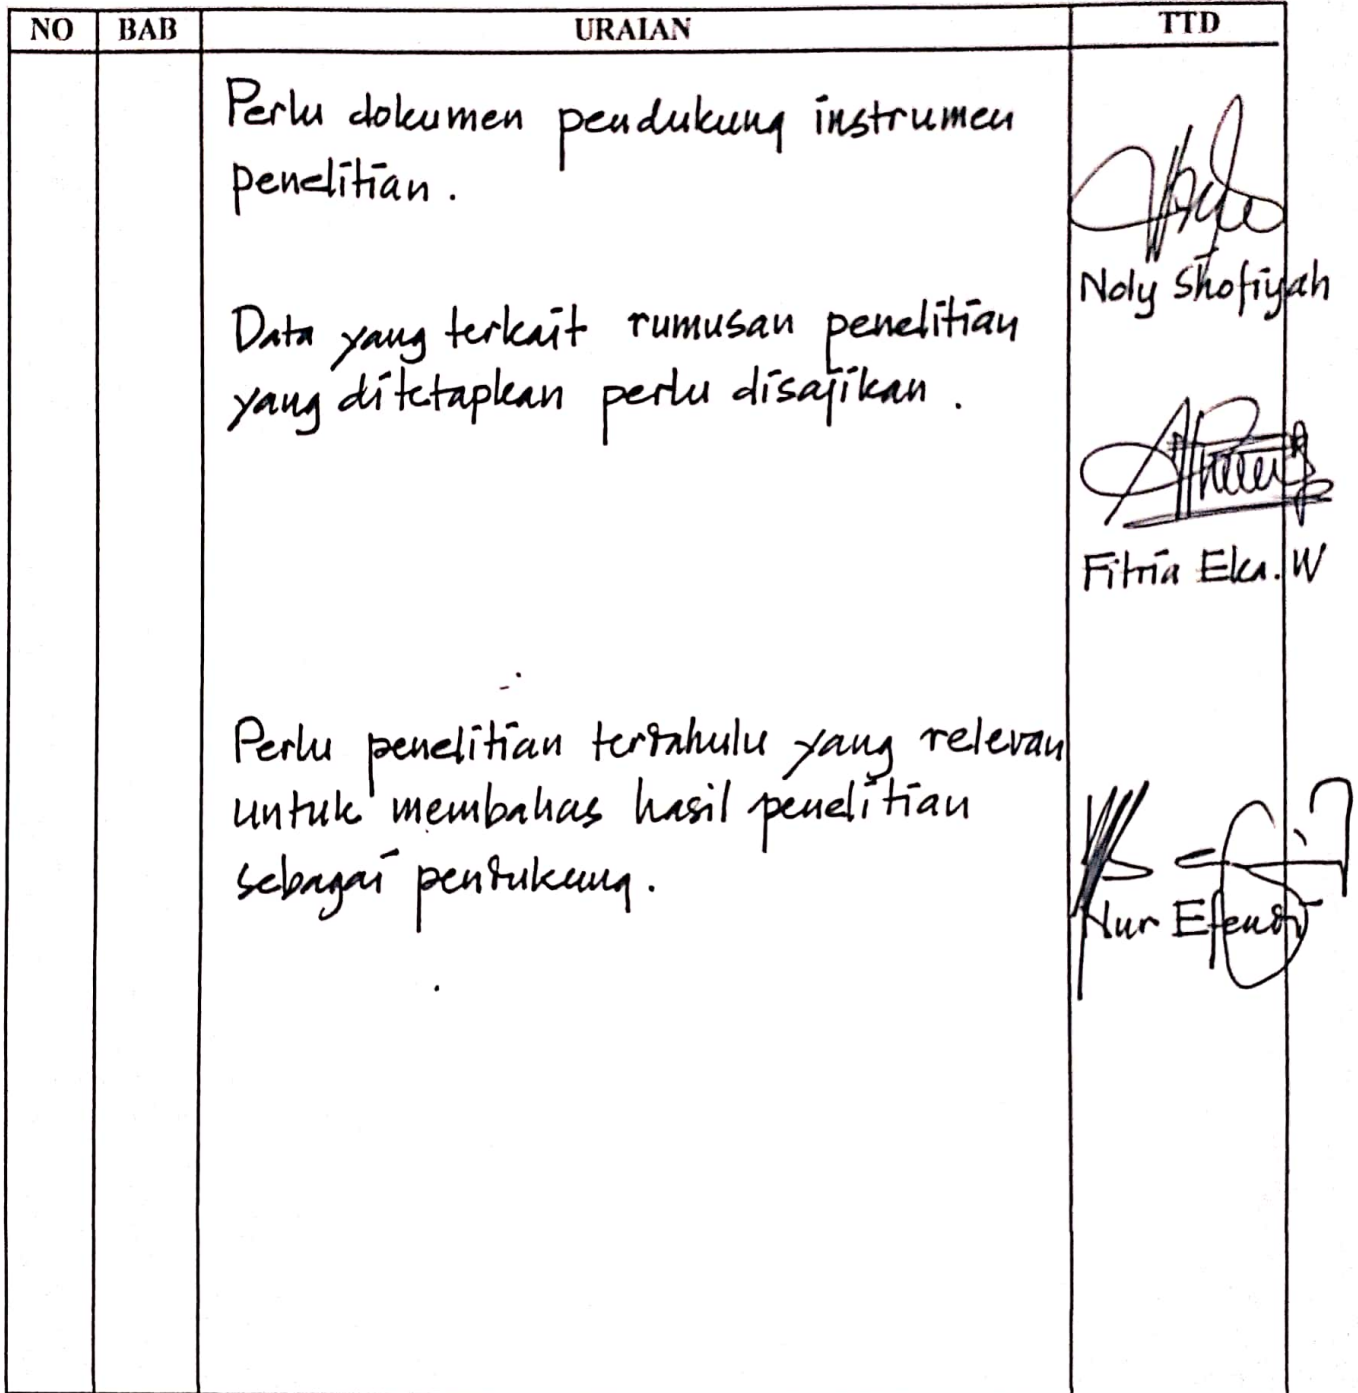 NO BAB URAIAN TTD
Perlu dokumen pendukung instrumen
penelitian.
Noly Shofiyah
Data yang terkait rumusan penelitian
yang ditetapkan perlu disajikan.
Fitria Eka. W
Perlu penelitian terdahulu yang relevan
untuk membahas hasil penelitian
sebagai pendukung.
Nur Efendi